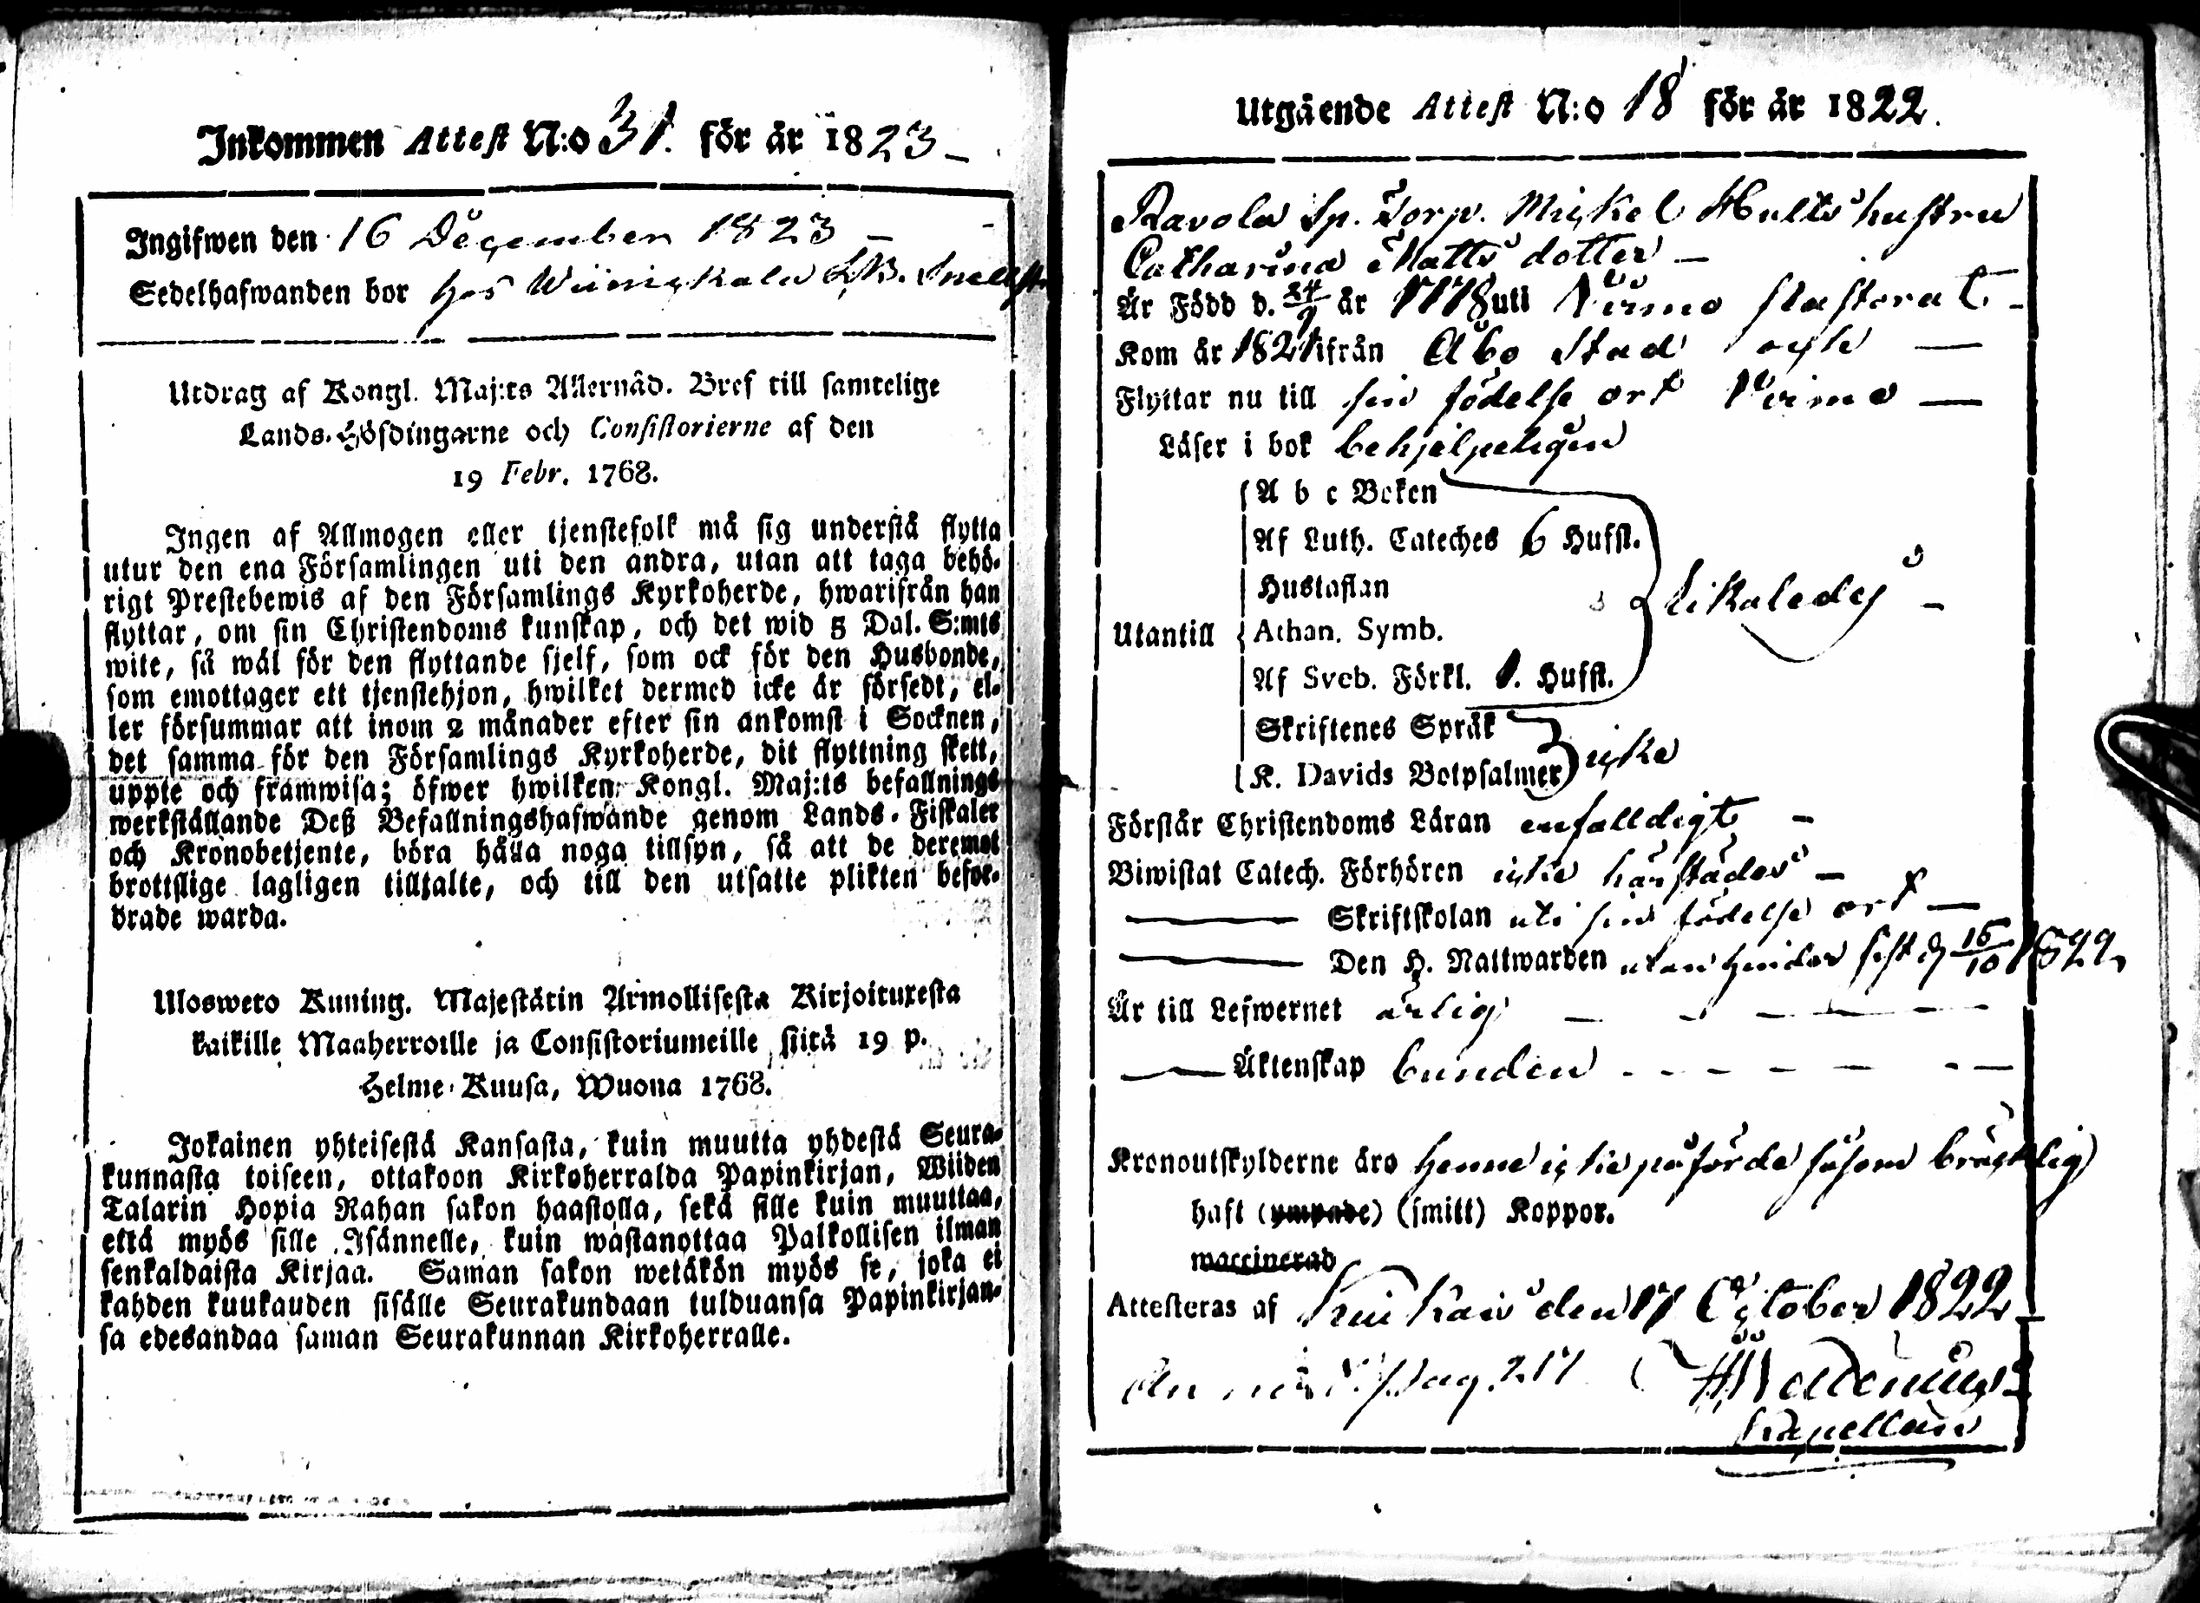 Inkommen Attest N:o 31. för år 1823
Ingifwen den 16 December 1823
Sedelhafwanden bor hos
Utdrag af Kongl. Maj:ts Allernåd. Bref till samtelige
Lands-Höfdingarne och Consistorierne af den
19 Febr. 1768.
Ingen af Allmogen eller tjenstefolk må sig understå flytta
utur den ena Församlingen uti den andra, utan att taga behö-
rigt Prestebewis af den Församlings Kyrkoherde, hwarifrån han
flyttar, om sin Christendoms kunskap, och det wid 5 Dal. S:mts
wite, så wäl för den flyttande sjelf, som ock för den Husbonde,
som emottager ett tjenstehjon, hwilket dermed icke är försedt, el-
ler försummar att inom 2 månader efter sin ankomst i Socknen,
det samma för den Församlings Kyrkoherde, dit flyttning skett,
uppte och framwisa; öfwer hwilken Kongl. Maj:ts befallnings
werkställande Deß Befallningshafwande genom Lands-Fiskaler
och Kronobetjente, böra hålla noga tillsyn, så att de deremot
brottslige lagligen tilltalte, och till den utsatte plikten befor-
drade warda.
Ulosweto Kuning. Majestätin Armollisesta Kirjoituxesta
kaikille Maaherroille ja Consistoriumeille siitä 19 p.
Helme-Kuusa, Wuona 1768.
Jokainen yhteisestä Kansasta, kuin muutta yhdestä Seura-
kunnasta toiseen, ottakoon Kirkoherralda Papinkirjan, Wiiden
Talarin Hopia Rahan sakon haastolla, sekä sille kuin muuttaa,
että myös sille Isännelle, kuin wastanottaa Palkollisen ilman
senkaldaista Kirjaa. Saman sakon wetäkön myös se, joka ei
kahden kuukauden sisälle Seurakundaan tulduansa Papinkirjan-
sa edesandaa saman Seurakunnan Kirkoherralle.
Utgående Attest N:o 18 för år 1822.
Ravola Sp. Torp. Mickel Hults hustru
Catharina Matts dotter
Är Född d. 24/9 år 1778 uti Virmo Pastorat
Kom år 1821 ifrån Åbo Stad och
Flyttar nu till sin födelse ort Virmo
Läser i bok behjelpeligen
A b c Boken
Af Luth. Cateches 6 Hufst.
Hustaflan
likaledes
Utantill Athan. Symb.
Af Sveb. Förkl. 1. Hufst.
Skriftenes Språk
icke
K. Davids Botpsalmer
Förstår Christendoms Läran enfalldigt
Biwistat Catech. Förhören icke härstädes
Skriftskolan uti sin födelse ort
Den H. Nattwarden utan hinder sist d 16/10 1822
Är till Lefwernet ärlig
Äktenskap bunden
Kronoutskylderne äro henne icke påförde såsom bräcklig
haft (ympade) (smitt) Koppor.
waccinerad
Attesteras af den 17 October 1822
Pag. 217
Kapellan